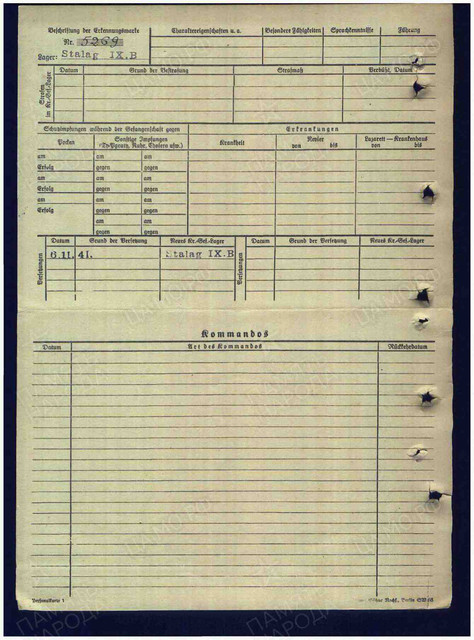 Beschriftung der Erkennungsmarke
Charaktereigenschaften u. a.
Besondere Fähigkeiten
Sprachkenntnisse
Führung
Nr. 5269
Lager: Stalag IX.B
Strafen im Kr.-Gef.-Lager
Datum
Grund der Bestrafung
Strafmaß
Verbüßt, Datum
Schutzimpfungen während der Gefangenschaft gegen
Erkrankungen
Pocken
Sonstige Impfungen
(Ty-Paraty, Ruhr, Cholera usw.)
Krankheit
Revier
von bis
Lazarett — Krankenhaus
von bis
am am am
Erfolg gegen gegen
am am am
Erfolg gegen gegen
am am am
Erfolg gegen gegen
am am
gegen gegen
Versetzungen
Datum
Grund der Versetzung
Neues Kr.-Gef.-Lager
Versetzungen
Datum
Grund der Versetzung
Neues Kr.-Gef.-Lager
6.11.41.
Stalag IX.B
Kommandos
Datum
Art des Kommandos
Rückkehrdatum
Personalkarte 1
Nachf., Berlin SW 68